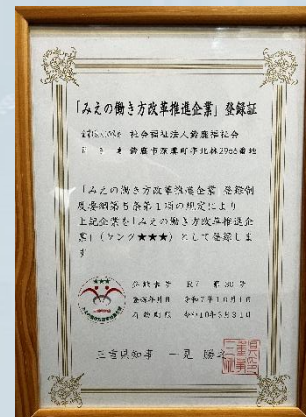 「みえの働き方改革推進企業」登録証
社会福祉法人鈴鹿福祉会
鈴鹿市深溝町字北林2956番地
「みえの働き方改革推進企業 登録制
度要綱第5条第1項の規定により
上記企業を「みえの働き方改革推進企
業」(ランク★★★)として登録しま
す
登録番号 第30号
登録年月日 令和7年10月1日
有効期限 令和10年3月31日
三重県知事 一見 勝之